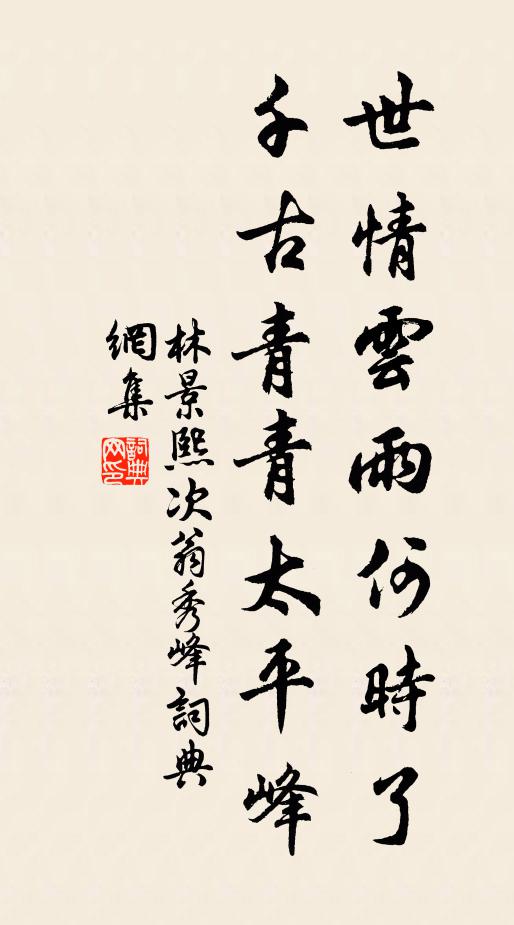 世情雲雨何時了
千古青青太平峰
林景熙次翁秀峰詞典
網集
詞典網印